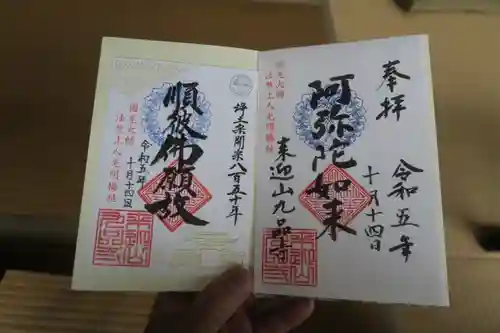 奉拝
令和五年
十月十四日
阿弥陀如来
来迎山九品寺
圓光大師
法然上人光明遍照
浄土宗開宗八百五十年
順彼佛願故
圓光大師
法然上人光明遍照
令和五年
十月十四日